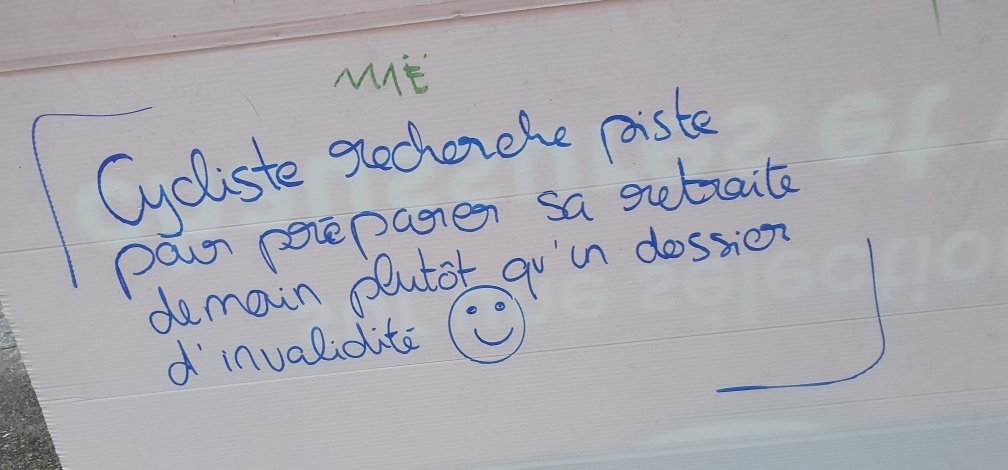 MIË
Cycliste recherche piste
pour préparer sa retraite
demain plutôt qu'un dossier
d'invalidité